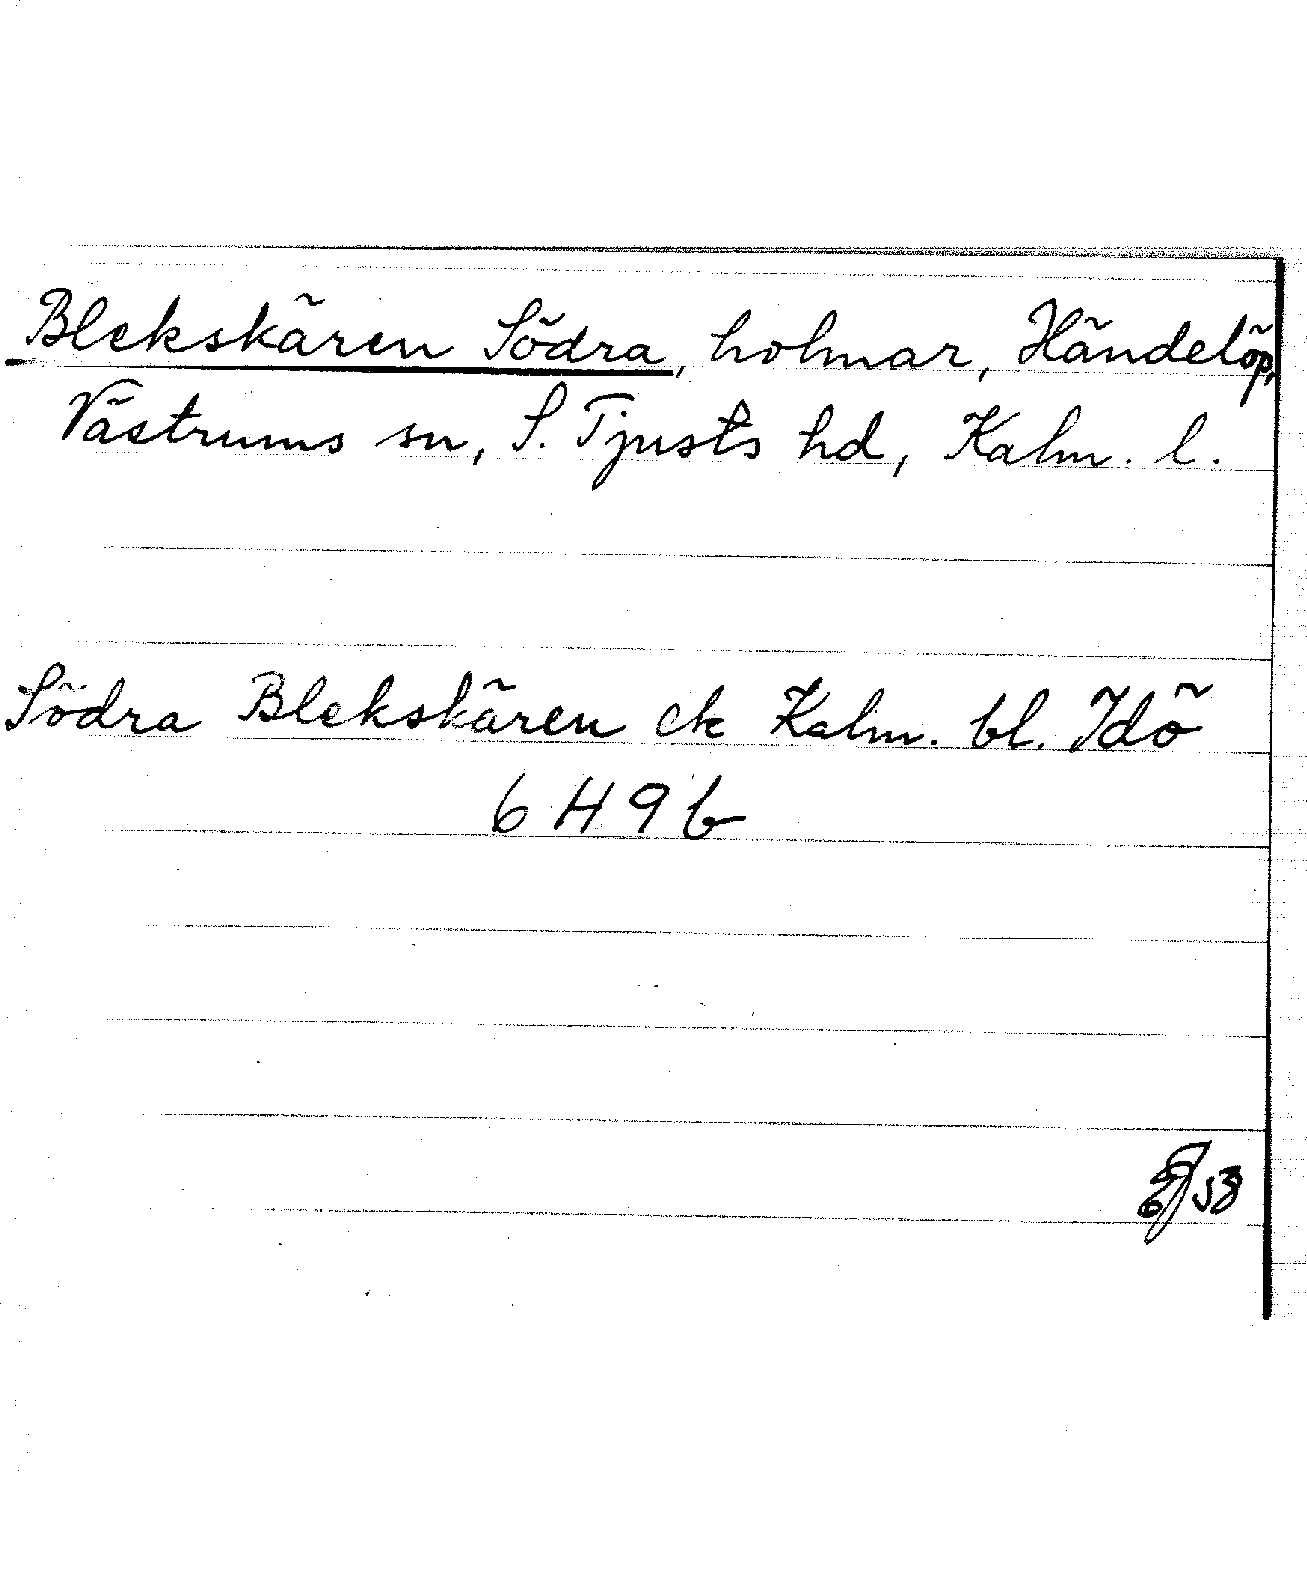 Blekskären Södra, holmar, Händelöp,
Västrums sn, S. Tjusts hd, Kalm. l.
Södra Blekskären ek Kalm. bl. Idö
6 H 9 b